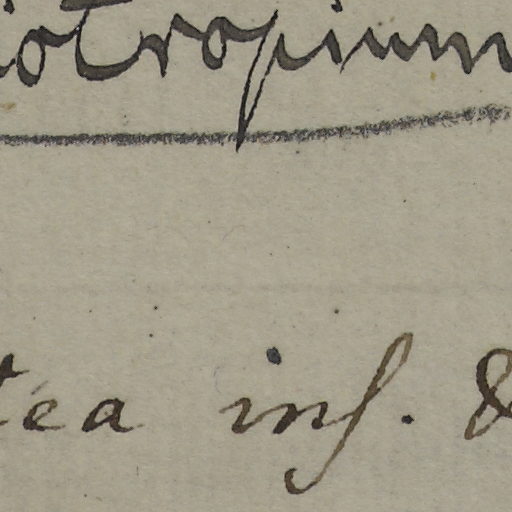 iotropium
tea inſ. &